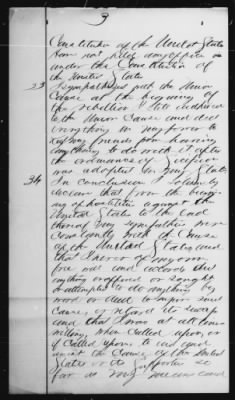 3
Constitution of the United States
have not held any office
under the Constitution of
the United States
33 I sympathized with the Union
Cause at the beginning of
the rebellion I adhered
to the Union Cause and did
everything in my power to
keep my friends from
anything to do with it after
the ordinance of Secession
was adopted in my State
34 In conclusion I solemnly
declare that from the beginning
of hostilities against the
United States to the end
thereof my sympathies were
constantly with the Cause
of the United States and
that I never of my own
free will and accord did
anything or offered or sought
or attempted to do anything by
word or deed to injure said
Cause or retard its success
and that I was at all times
willing when called upon, or
if called upon, to aid and
assist the Cause of the United
States or its supporters so
far as my means and